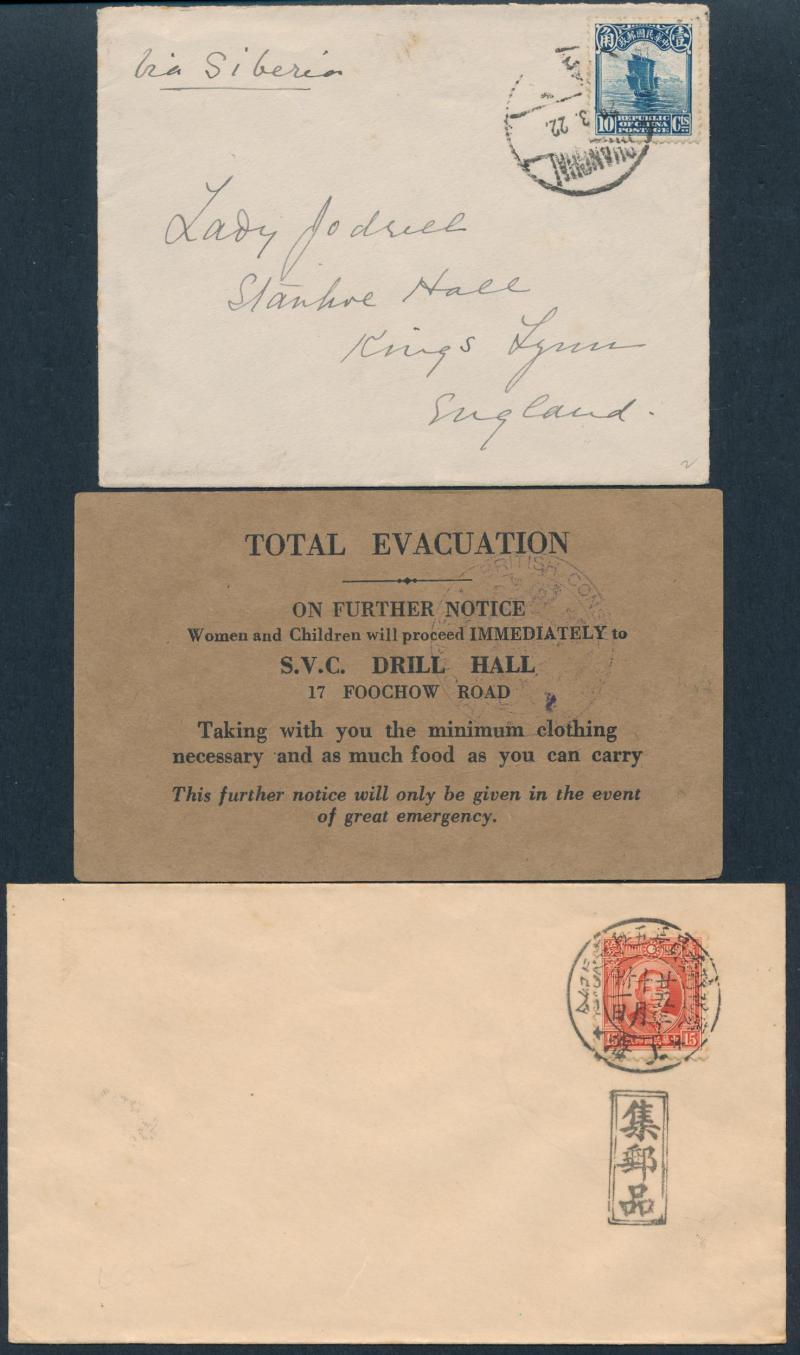 Via Siberia
中華民國郵政
角
壹
10
REPUBLIC
OF CHINA
POSTAGE
Cts
SHANGHAI
3. 22.
Lady Jodrell
Stanhoe Hall
Kings Lynn
England.
TOTAL EVACUATION
ON FURTHER NOTICE
Women and Children will proceed IMMEDIATELY to
S.V.C. DRILL HALL
17 FOOCHOW ROAD
Taking with you the minimum clothing
necessary and as much food as you can carry
This further notice will only be given in the event
of great emergency.
BRITISH CONS
15 15
集郵品